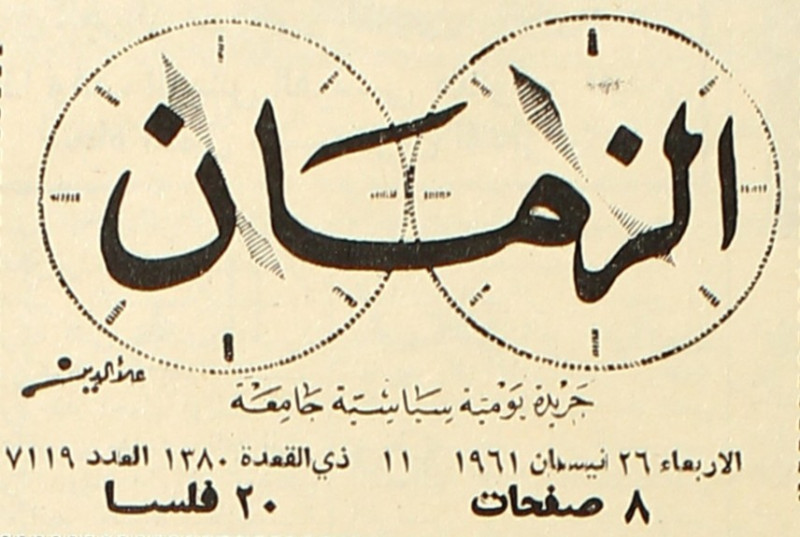 الزمان
علاءالدين
جريدة يومية سياسية جامعة
الاربعاء ٢٦ نيسان ١٩٦١ ١١ ذي القعدة ١٣٨٠ العدد ٧١١٩
٨ صفحات ٢٠ فلسا